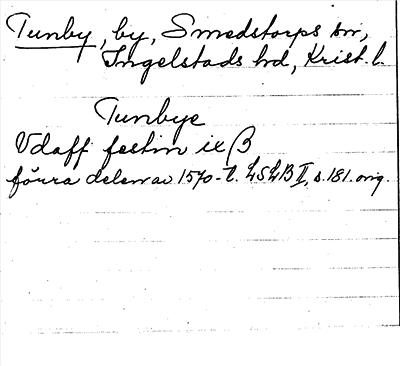 Tunby, by, Smedstorps sn,
Ingelstads hd, Krist. l.
Tunbye
Vdaff festin ix β
förra delen av 1570-t. LSLB II, s. 181. orig.